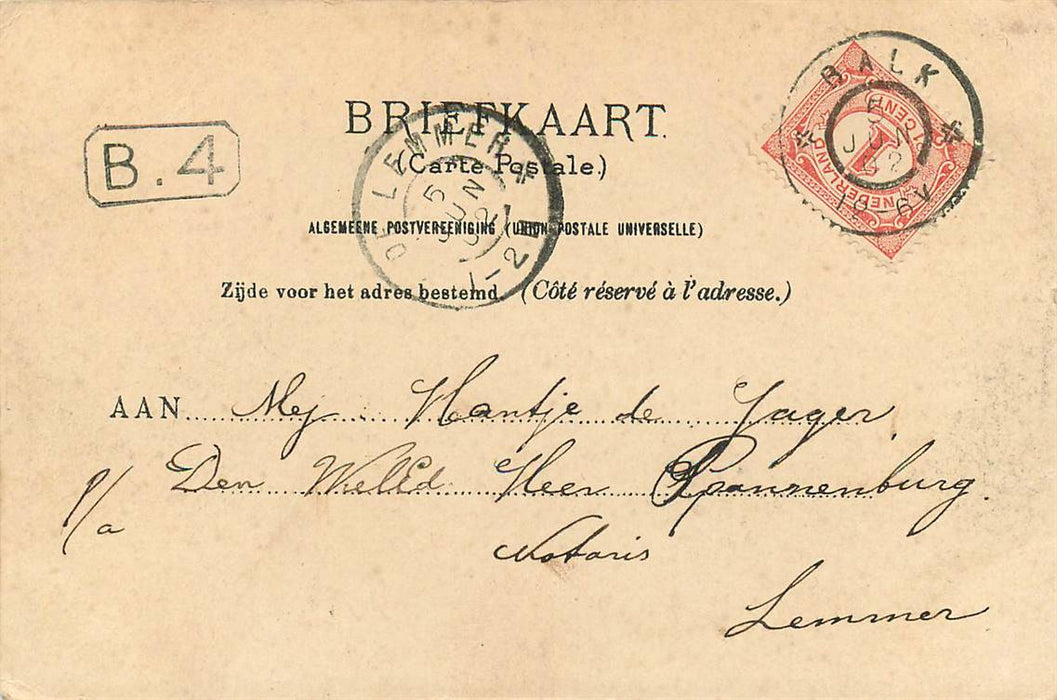 BRIEFKAART.
(Carte Postale.)
B.4
DE LEMMER
5 JUN 02
1-2N
BALK
5 JUN 02
NEDERLAND
1 CENT
ALGEMEENE POSTVEREENIGING (UNION POSTALE UNIVERSELLE)
Zijde voor het adres bestemd. (Côté réservé à l'adresse.)
AAN Mej. Hantje de Jager
p/a Den WelEd Heer Pannenburg.
Notaris
Lemmer